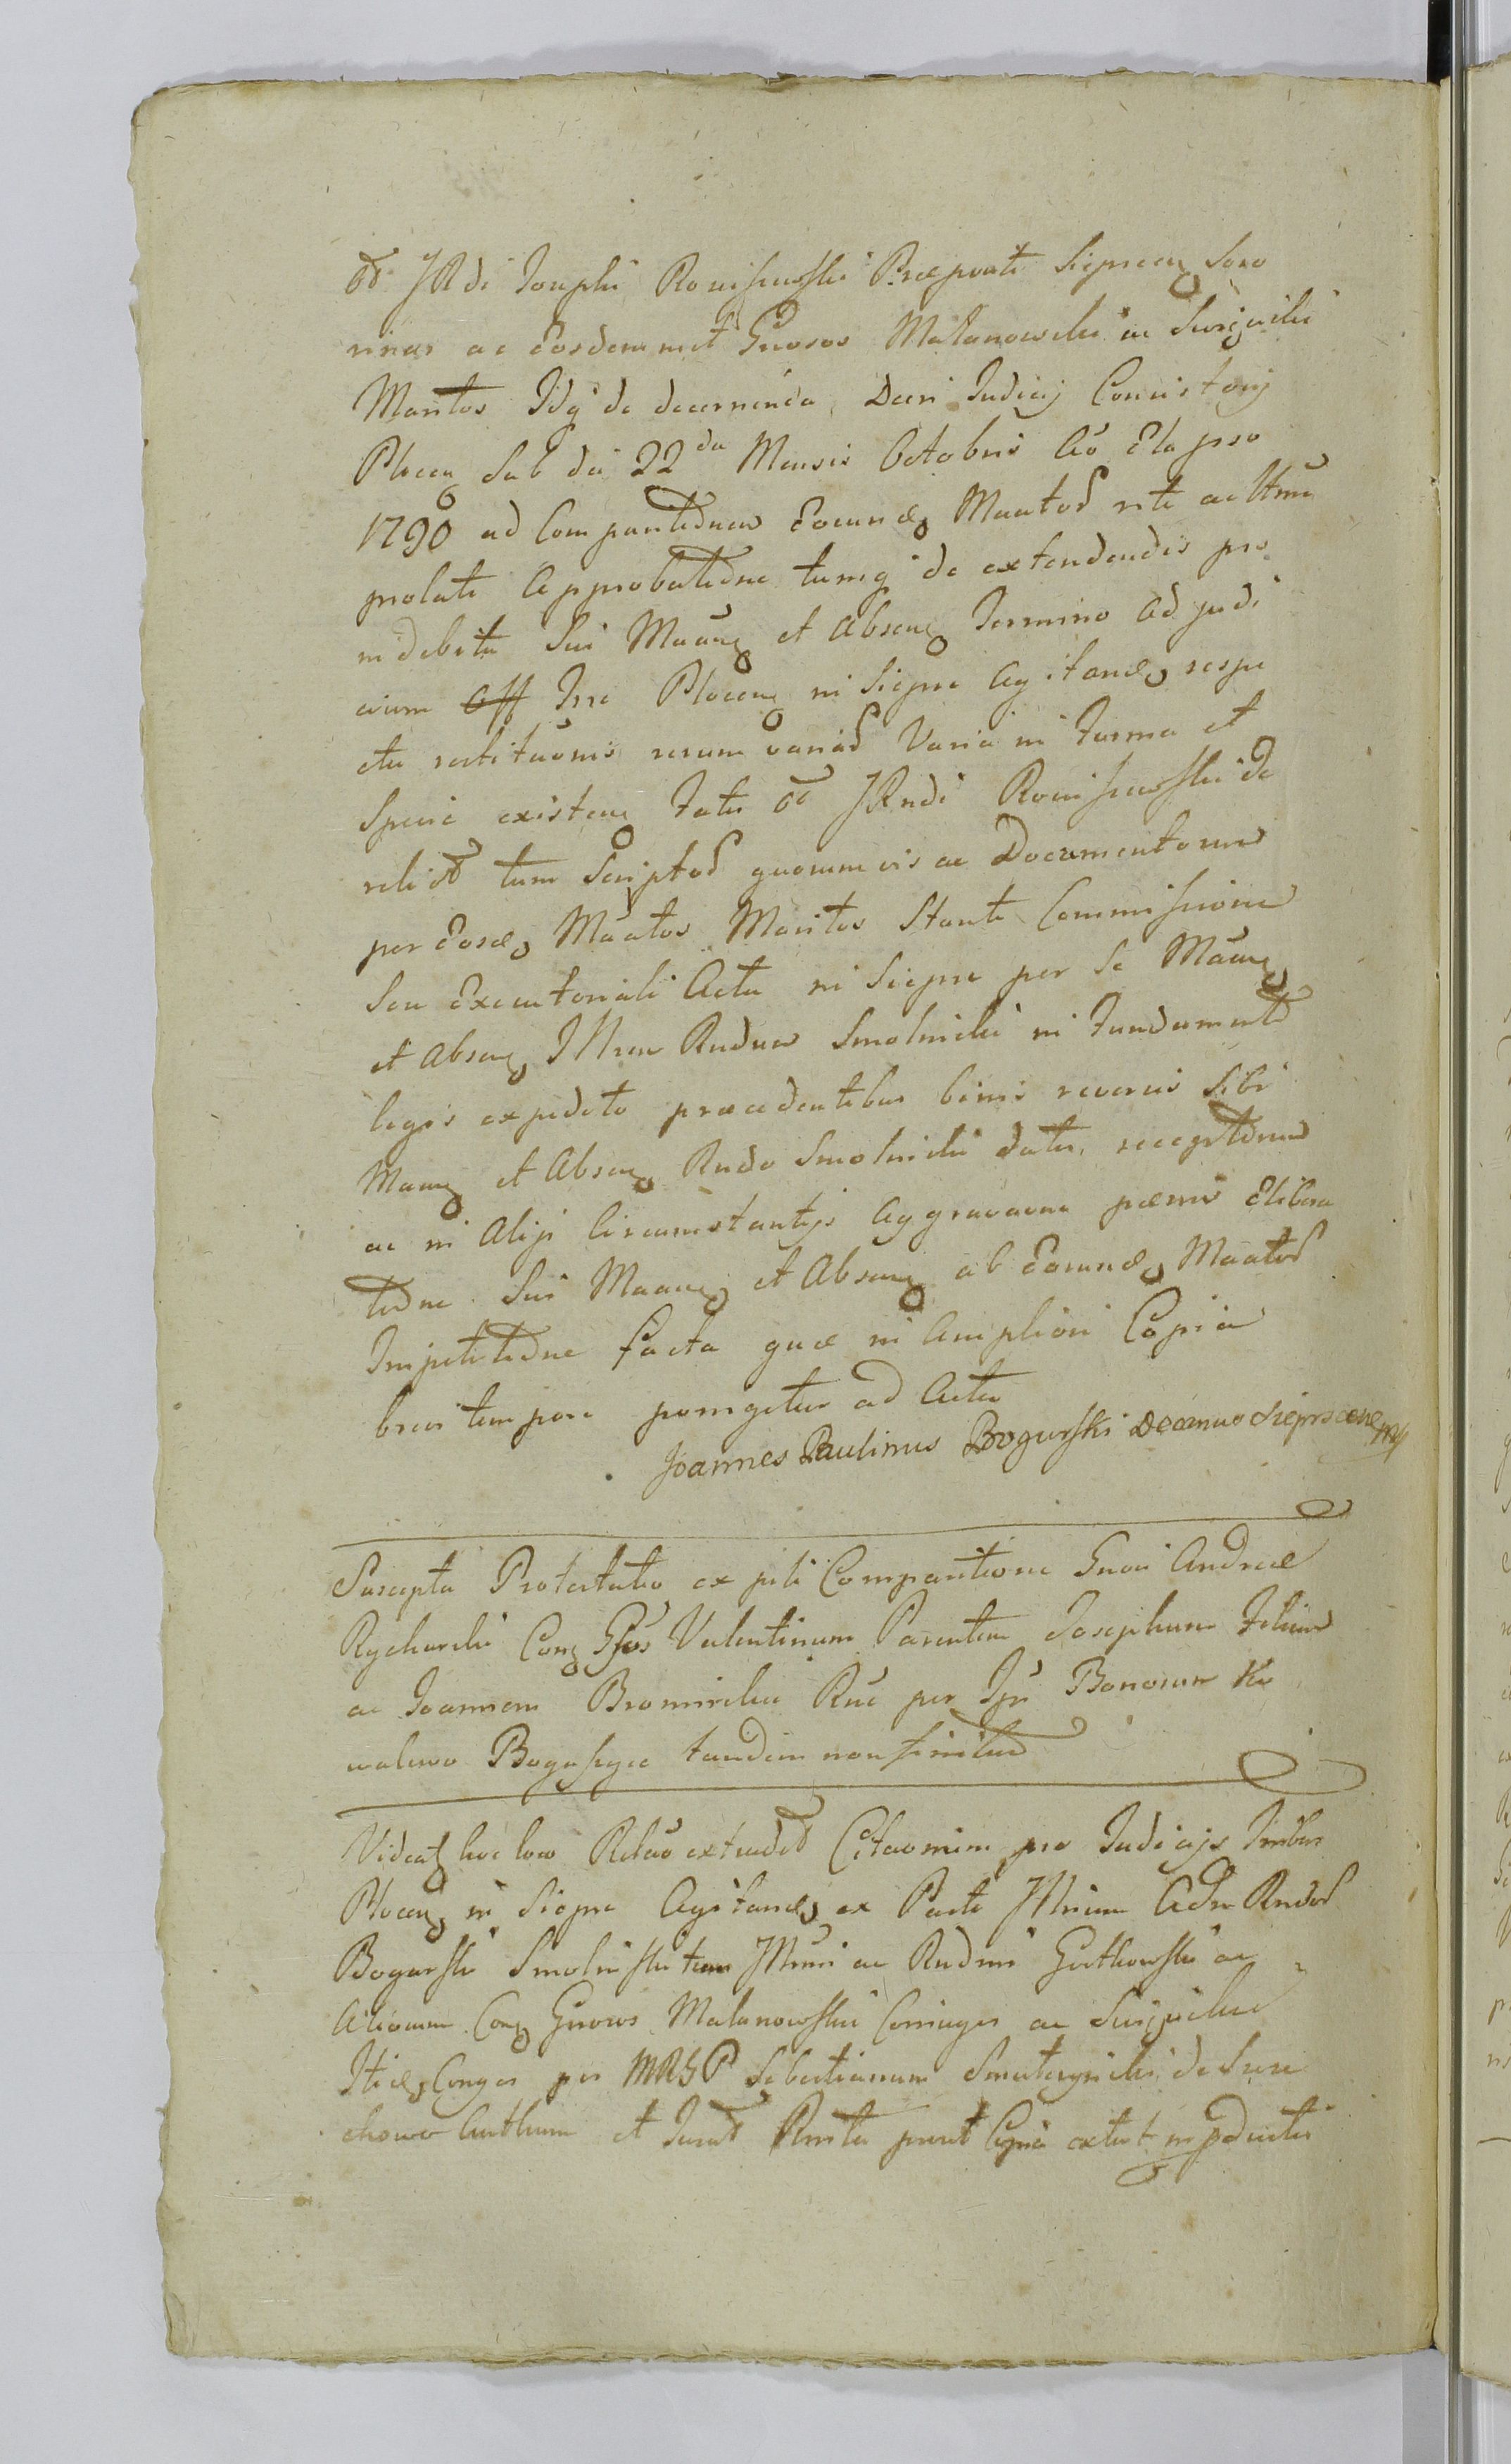 od JRdi Josephi Roniszewski Præpositi Sieprcen Soro
rinas ac Eosdemmet Gnosos Malanowski ac Surzycki
Maritos Idq de decernenda Decri Judicij Consistorij
Plocen Sub die 22da Mensis Octobris Ao Elapso
1790 ad Comparitionem Eorund Maatos rite ac
prolati Approbatione tumq de extendendis pro
indebita Sui Maane et Absene Termino ad judi
cium Off Trre Plocen in Sieprc Agitand respe
ctu restitutionis rerum variar Varia in Forma et
Specie existen Fatu od JRndi Roniszewski de
relict tum Scriptor quorumvis ac Documentorum
per Eosd Maatos Maritos Stante Commissione
Seu Executoriali Actu in Sieprc per Se Maane
et Absene Rndum Smolnicki in Fundamento
legis expedito præcedentibus binis reversis Sibi
Maane et Absene Rndo Smolnicki datis receptionem
ac in Alijs Circumstantijs Aggravaone pænis Elibera
tione Sui Maane et Absene ab Eorund Maator
Impetitione facta quæ in Ampliori Copia
brevi tempore porrigetur ad Acta
Joannes Paulinus Bogurski Decanus Sieprcens mp
Suscepta Protestatio ex psli Comparitione Gnosi Andreæ
Rycharski Con Gsos Valentinum Parentem Josephum Filium
ac Joannem Bromirski Rne per Bonorum Ko
walewo Boguszyce tandem non finita
Videat hoc loco Relao extradit Citaonum pro Judicijs Trribus
Plocen in Sieprc Agitand ex Parte Adm Rndor
Bogurski Smolinski tum ac Rndmi Gutkowski ac
Aliorum Con Gnosos Malanowski Conjuges ac Surzycki
Itid Conges per MRGP Sebastianum de Sure
chowo Authum et Jurat prout Copia extat in pductis